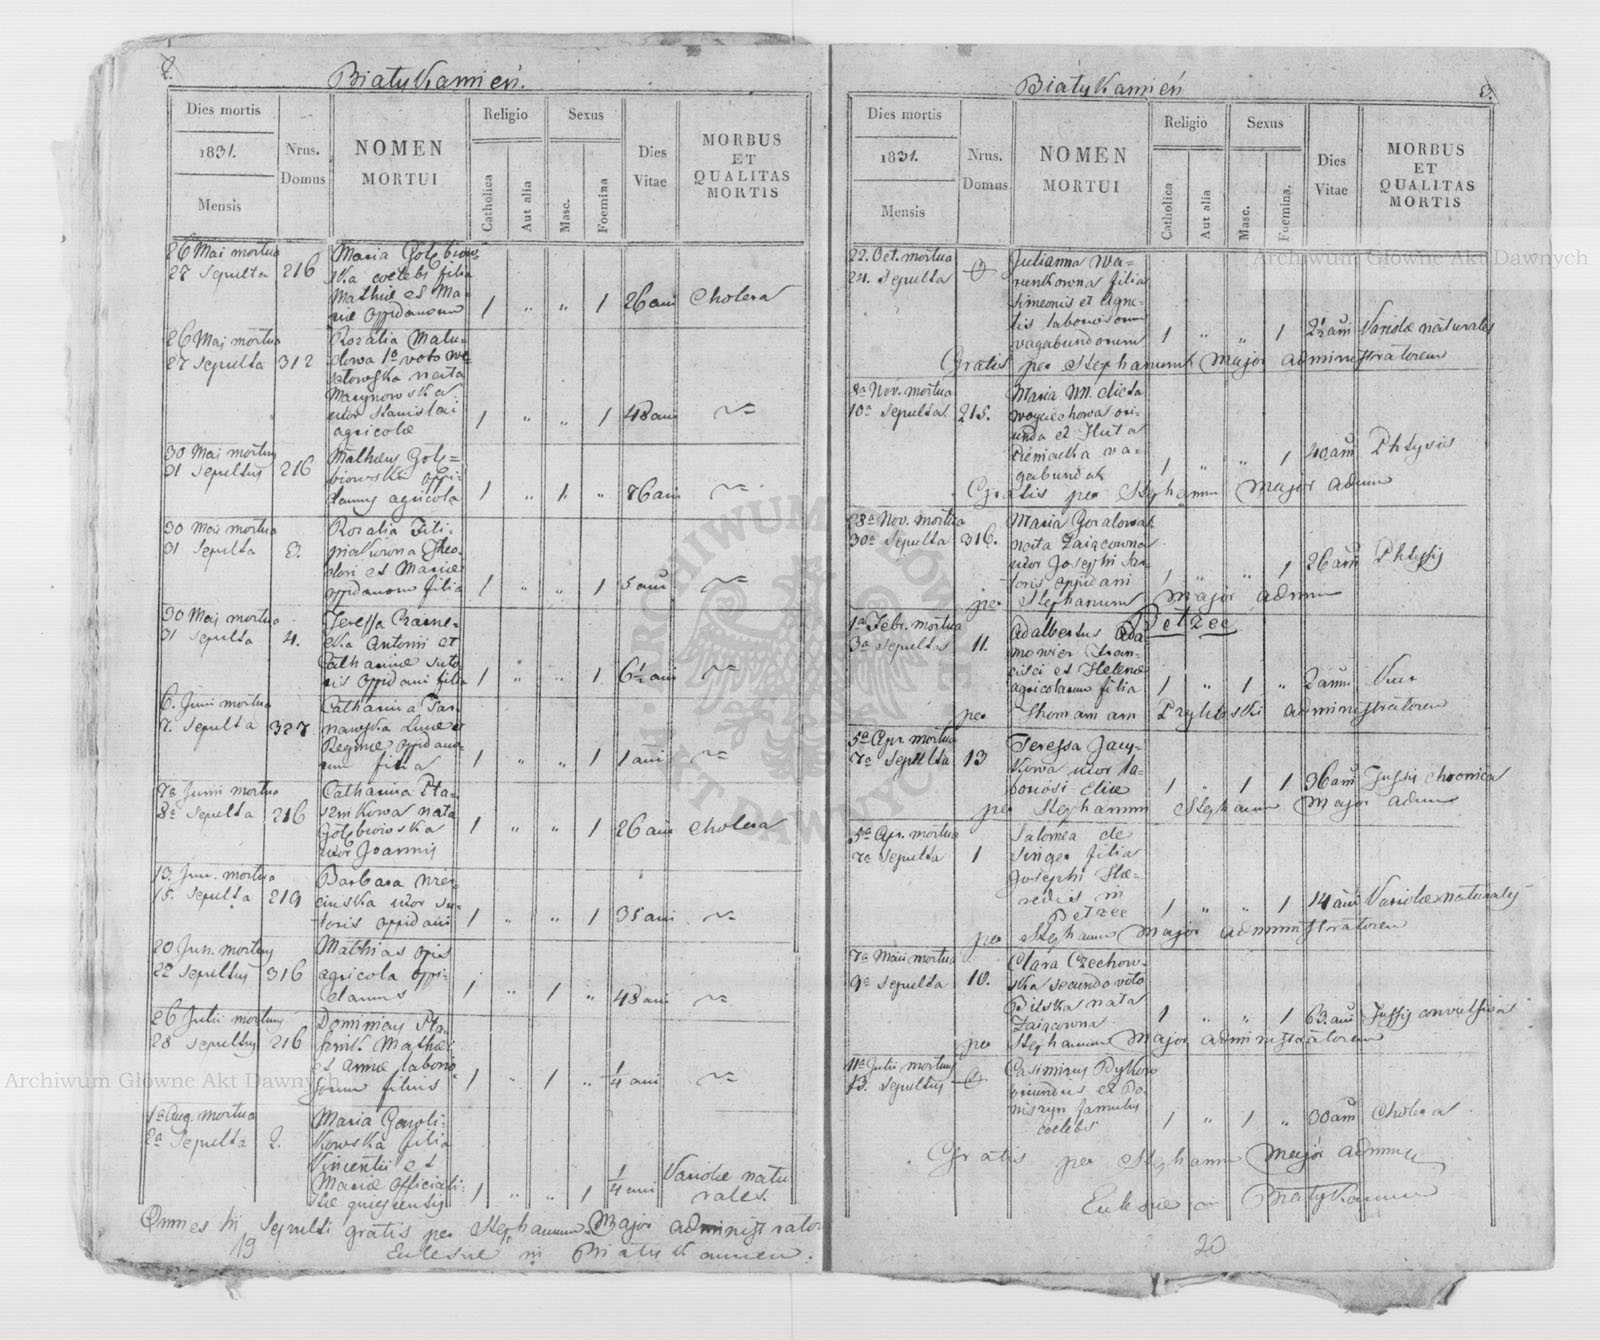 2.
Biały Kamień.
Dies mortis
1831.
Mensis
Nrus. Domus
NOMEN MORTUI
Religio
Catholica
Aut alia
Sexus
Masc.
Foemina
Dies Vitae
MORBUS ET QUALITAS MORTIS
26 Mai mortua
27 Sepulta 216
Maria Gołębiow
ska coelebs filia
Mathiæ et Ma-
riæ oppidanorum 1 " " 1 26 ani Cholera
26 Mai mortua
27 Sepulta 312
Rozalia
1o voto
nata
uxor Stanislai
agricolæ 1 " " 1 48 ani
30 Mai mortuus
31 Sepultus 216
Matheus Gołę=
biowski oppi-
danus agricola 1 " 1 " 86 ani
30 Mai mortua
31 Sepulta 3.
Rozalia Fili-
piakowna Theo-
dori et Mariæ
oppidanorum filia 1 " " 1 5 ani
30 Mai mortua
31 Sepulta 4.
Teressa
Antonii et
Catharinæ suto-
ris oppidani filia 1 " " 1 6 1/2 ani
6. Junii mortua
7. Sepulta 327
Catharina Tar-
nawska Lucæ et
Reginæ oppidano-
rum filia 1 " " 1 1 ani
7a Junii mortua
8a Sepulta 216
Catharina Pta-
sznikowa nata
Gołębiowska
uxor Joannis 1 " " 1 26 ani Cholera
13. Jun. mortua
15. Sepulta 219
Barbara
uxor su-
toris oppidani 1 " " 1 35 ani
20 Jun. mortuus
22 Sepultus 316
Mathias Opis
agricola oppi-
danus 1 " 1 " 48 ani
26 Julii mortuus
28 Sepultus 216
Dominicus Pta-
Mathæi
et Annæ laborio-
sorum filius 1 " 1 " 1/4 ani
1a Aug. mortua
2a Sepulta 2.
Maria
filia
Vincentii et
Mariæ officiali-
1 " " 1 1/4 ani Variolæ natu
rales.
Omnes hi sepulti gratis per Stephanum Major administrator
19 Eulesiæ in Biały Kamien.
Biały Kamień
3.
Dies mortis
1831.
Mensis
Nrus. Domus
NOMEN MORTUI
Religio
Catholica
Aut alia
Sexus
Masc.
Foemina.
Dies Vitae
MORBUS ET QUALITAS MORTIS
22. Oct. mortua
24. Sepulta
Julianna Wa-
runkowna filia
Simeonis et Agne-
tis laboriosorum
vagabundorum 1 " " 1 2 1/2 ani Variolæ naturales
Gratis per Stephanum Major administratorem
8a Nov. mortua
10a Sepulta 215.
Maria NN. dicta
Woyciechowa ori-
unda ex Huta
va-
gabunda 1 " " 1 40 ani Phtysis
Gratis per Stephanum Major admm
28a Nov. mortua
30a Sepulta 316.
Maria Goralowa
nata Zaiącowna
uxor Josephi Su-
toris oppidani 1 " " 1 26 ani Phtysis
per Stephanum Major admm
Petrzec
1a Febr. mortua
3a Sepultus 11.
Adalbertus Ada
mowicz Fran-
cisci et Helenæ
agricolarum filia 1 " 1 " 2 anni
per Thomam Przyłuski administratorem
5a Apr. mortua
7a Sepulta 13
Teressa Jacy-
kowa uxor la-
boriosi Eliæ 1 " 1 1 36 ani Tussis chronica
per Stephanum Stephanum Major admm
5a Apr. mortua
7a Sepulta 1
Salomea de
Singer filia
Josephi Hæ-
redis in
Petrzec 1 " " 1 14 ani Variolæ naturales
per Stephanum Major administratorem
7a Maii mortua
9a Sepulta 10.
Clara Czechow-
ska secundo voto
Bilska nata
Zaiącowna 1 " " 1 63. ani Tussis convulsiva
per Stephanum Major administratorem
11a Julii mortuus
13. Sepultus
Casimirus Dykow
oriundus ex Do-
famulus
coelebs 1 " 1 " 30 ani Cholera
Gratis per Stephanum Major admm
Eulesiæ in Biały Kamien
20
Archiwum Główne Akt Dawnych
Archiwum Główne Akt Dawnych
ARCHIWUM GŁÓWNE AKT DAWNYCH